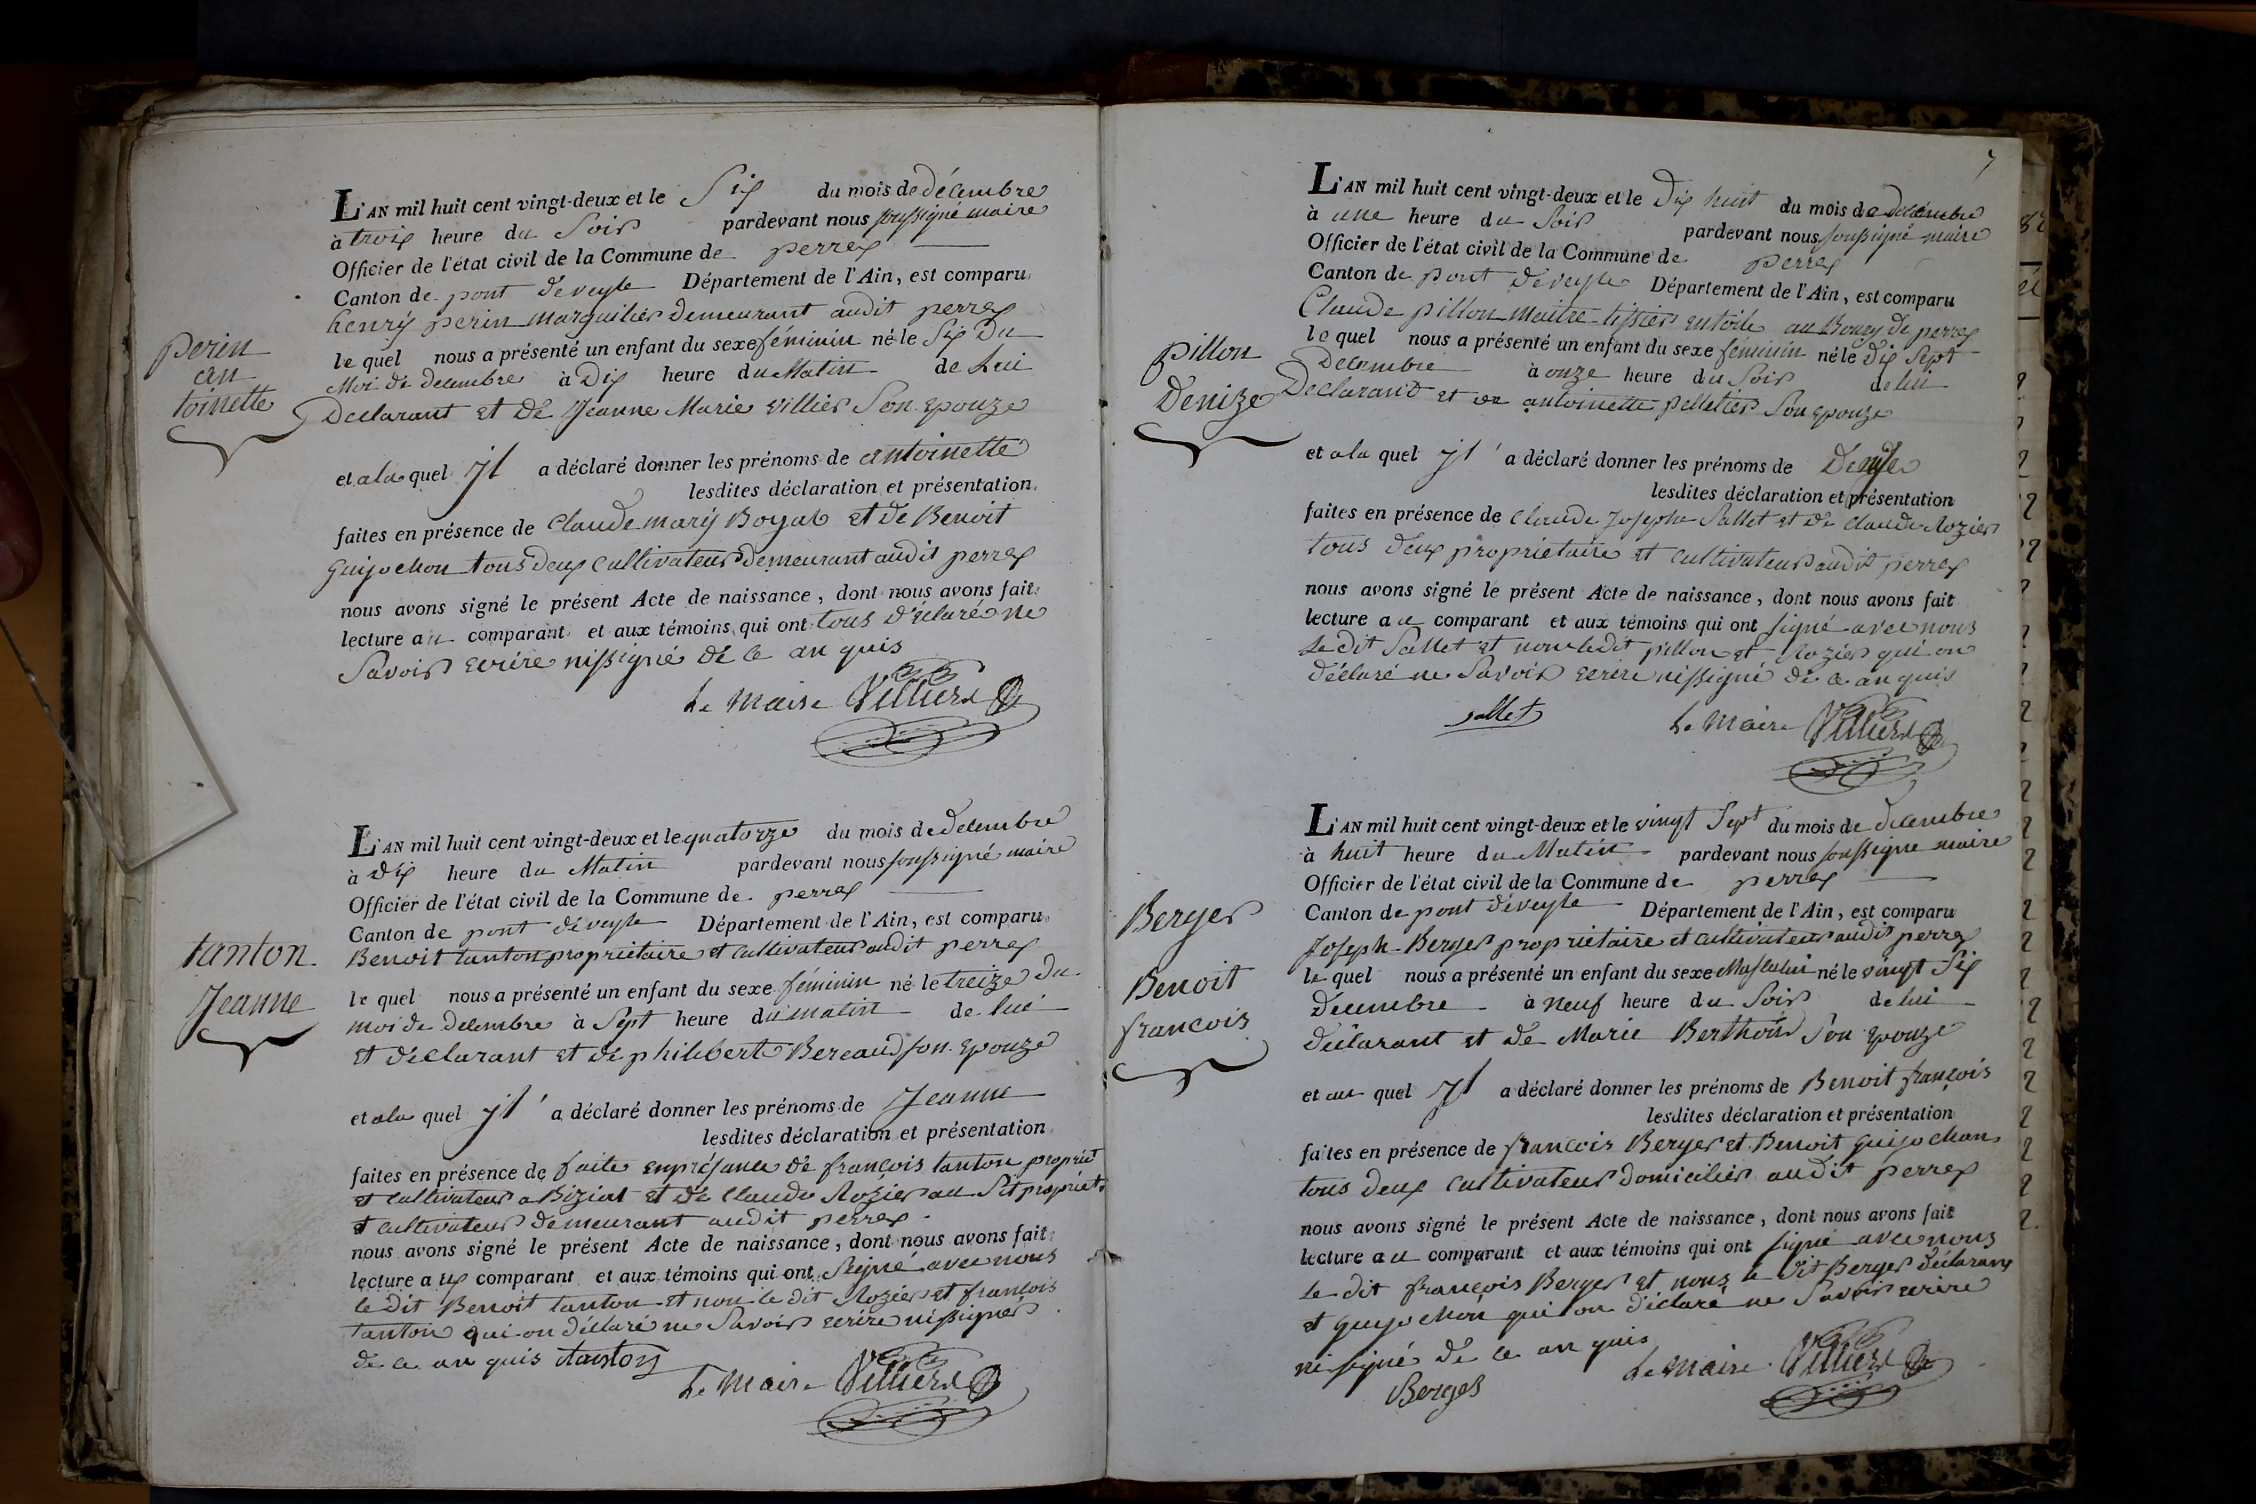 Perin
an
toinette
L'AN mil huit cent vingt-deux et le Six du mois de décembre
à trois heure du Soir pardevant nous soussigné maire
Officier de l'état civil de la Commune de perrex
Canton de pont déveyle Département de l'Ain, est comparu
henry perin marguilier demeurant audit perrex
le quel nous a présenté un enfant du sexe féminin né le Six Du
Moi de decembre à Dix heure du Matin de Lui
Declarant et de Jeanne Marie villier Son epouze
et a la quel yl a déclaré donner les prénoms de antoinette
lesdites déclaration et présentation
faites en présence de Claude mary Boyat et de Benoit
guijochon tous deux cultivateur demeurant audit perrex
nous avons signé le présent Acte de naissance, dont nous avons fait
lecture au comparant et aux témoins qui ont tous déclaré ne
Savoir ecrire nissigné de ce an quis
Le Maire Villierd
tanton
Jeanne
L'AN mil huit cent vingt-deux et le quatorze du mois de decembre
à Dix heure du Matin pardevant nous soussigné maire
Officier de l'état civil de la Commune de perrex
Canton de pont déveyle Département de l'Ain, est comparu
Benoit tanton proprietaire et cultivateur audit perrex
le quel nous a présenté un enfant du sexe féminin né le treize du
moi de decembre à Sept heure du matin de lui
et declarant et de philiberte Bereaud son epouze
et a la quel yl a déclaré donner les prénoms de Jeanne
lesdites déclaration et présentation
faites en présence de faite enprésance de françois tanton propriét
et cultivateur a Biziat et de Claude Rozier au Sit propriét
et cultivateur demeurant audit perrex
nous avons signé le présent Acte de naissance, dont nous avons fait
lecture aux comparant et aux témoins qui ont Signé avec nous
le dit Benoit tanton et non le dit Rozier et françois
tanton qui on déclaré ne Savoir ecrire nissigner
de ce an quis tanton
Le Maire Villierd
7
pillon
Denize
L'AN mil huit cent vingt-deux et le Dix huit du mois de decembre
à une heure du Soir pardevant nous soussigné maire
Officier de l'état civil de la Commune de perrex
Canton de pont deveyle Département de l'Ain, est comparu
Claude pillon maitre tissier entoile au Bourg de perrex
le quel nous a présenté un enfant du sexe féminin né le dix Sept
Decembre à onze heure du Soir de lui
Declarant et de antoinette pelletier Son epouze
et a la quel yl a déclaré donner les prénoms de
lesdites déclaration et présentation
faites en présence de Claude Josephe Sallet et de Claude Rozier
tous deux proprietaire et cultivateur audit perrex
nous avons signé le présent Acte de naissance, dont nous avons fait
lecture au comparant et aux témoins qui ont signé avec nous
Le dit Sallet et non ledit pillon et Rozier qui on
déclaré ne Savoir ecrire nissigné de ce an quis
sallet
Le Maire Villierd
Berger
Benoit
francois
L'AN mil huit cent vingt-deux et le vingt Sept du mois de decembre
à huit heure du Matin pardevant nous soussigne maire
Officier de l'état civil de la Commune de perrex
Canton de pont déveyle Département de l'Ain, est comparu
Joseph Berger proprietaire et cultivateur audit perrex
le quel nous a présenté un enfant du sexe Masculin né le vingt Six
Decembre à neuf heure du Soir de lui
declarant et de Marie Berthoud Son epouze
et au quel yl a déclaré donner les prénoms de Benoit françois
lesdites déclaration et présentation
faites en présence de francois Berger et Benoit guijochon
tous deux cultivateur domicilier audit perrex
nous avons signé le présent Acte de naissance, dont nous avons fait
lecture au comparant et aux témoins qui ont signé avec nous
Le dit françois Berger et nous le dit Berger déclarant
et guijochon qui on déclaré ne Savoir ecrire
ni signé de ce an quis
Berger
Le Maire Villierd